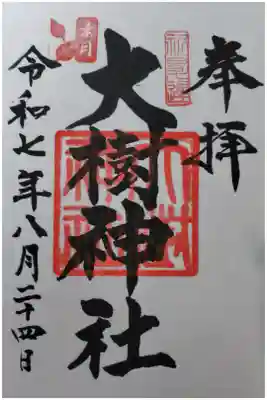 奉拝
大樹神社
令和七年八月二十四日